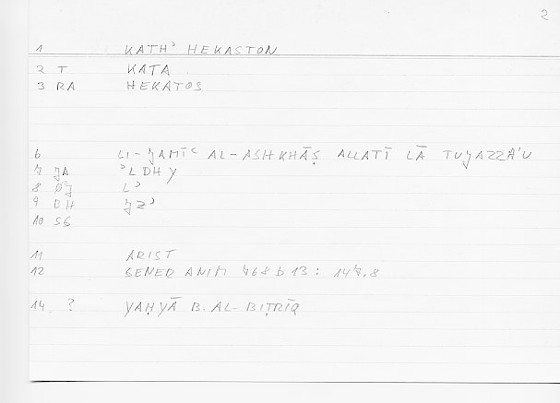 2
1 KATH' HEKASTON
2 T KATA
3 RA HEKATOS
6 LI-JAMĪʿ AL-ASHKHĀṢ ALLATĪ LĀ TUJAZZAʾU
7 JA ʾLDHY
8 ØJ Lʾ
9 BH JZʾ
10 SG
11 ARIST
12 GENER ANIM 768 b 13 : 147.8
14 ? YAḤYĀ B. AL-BIṬRĪQ